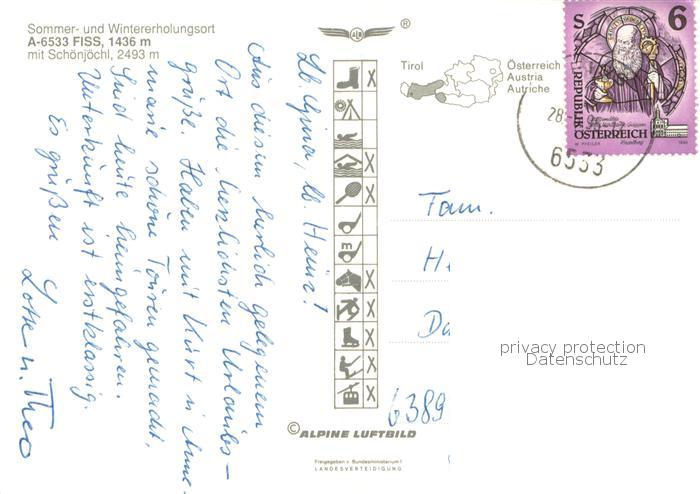 Sommer- und Wintererholungsort
A-6533 FISS, 1436 m
mit Schönjöchl, 2493 m
®
Tirol
Österreich
Austria
Autriche
S 6
REPUBLIK
ÖSTERREICH
28.
6533
Lb. Heinz!
Aus diesem herrlich gelegenem
Ort die herzlichsten Urlaubs-
grüße. Haben mit Kurt u. Anne-
marie schöne Touren gemacht.
Sind heute heimgefahren.
Unterkunft ist erstklassig.
Es grüßen
Lotte u. Theo
m
Fam.
H
Da
6389
privacy protection
Datenschutz
© ALPINE LUFTBILD
Freigegeben v. Bundesministerium f.
LANDESVERTEIDIGUNG